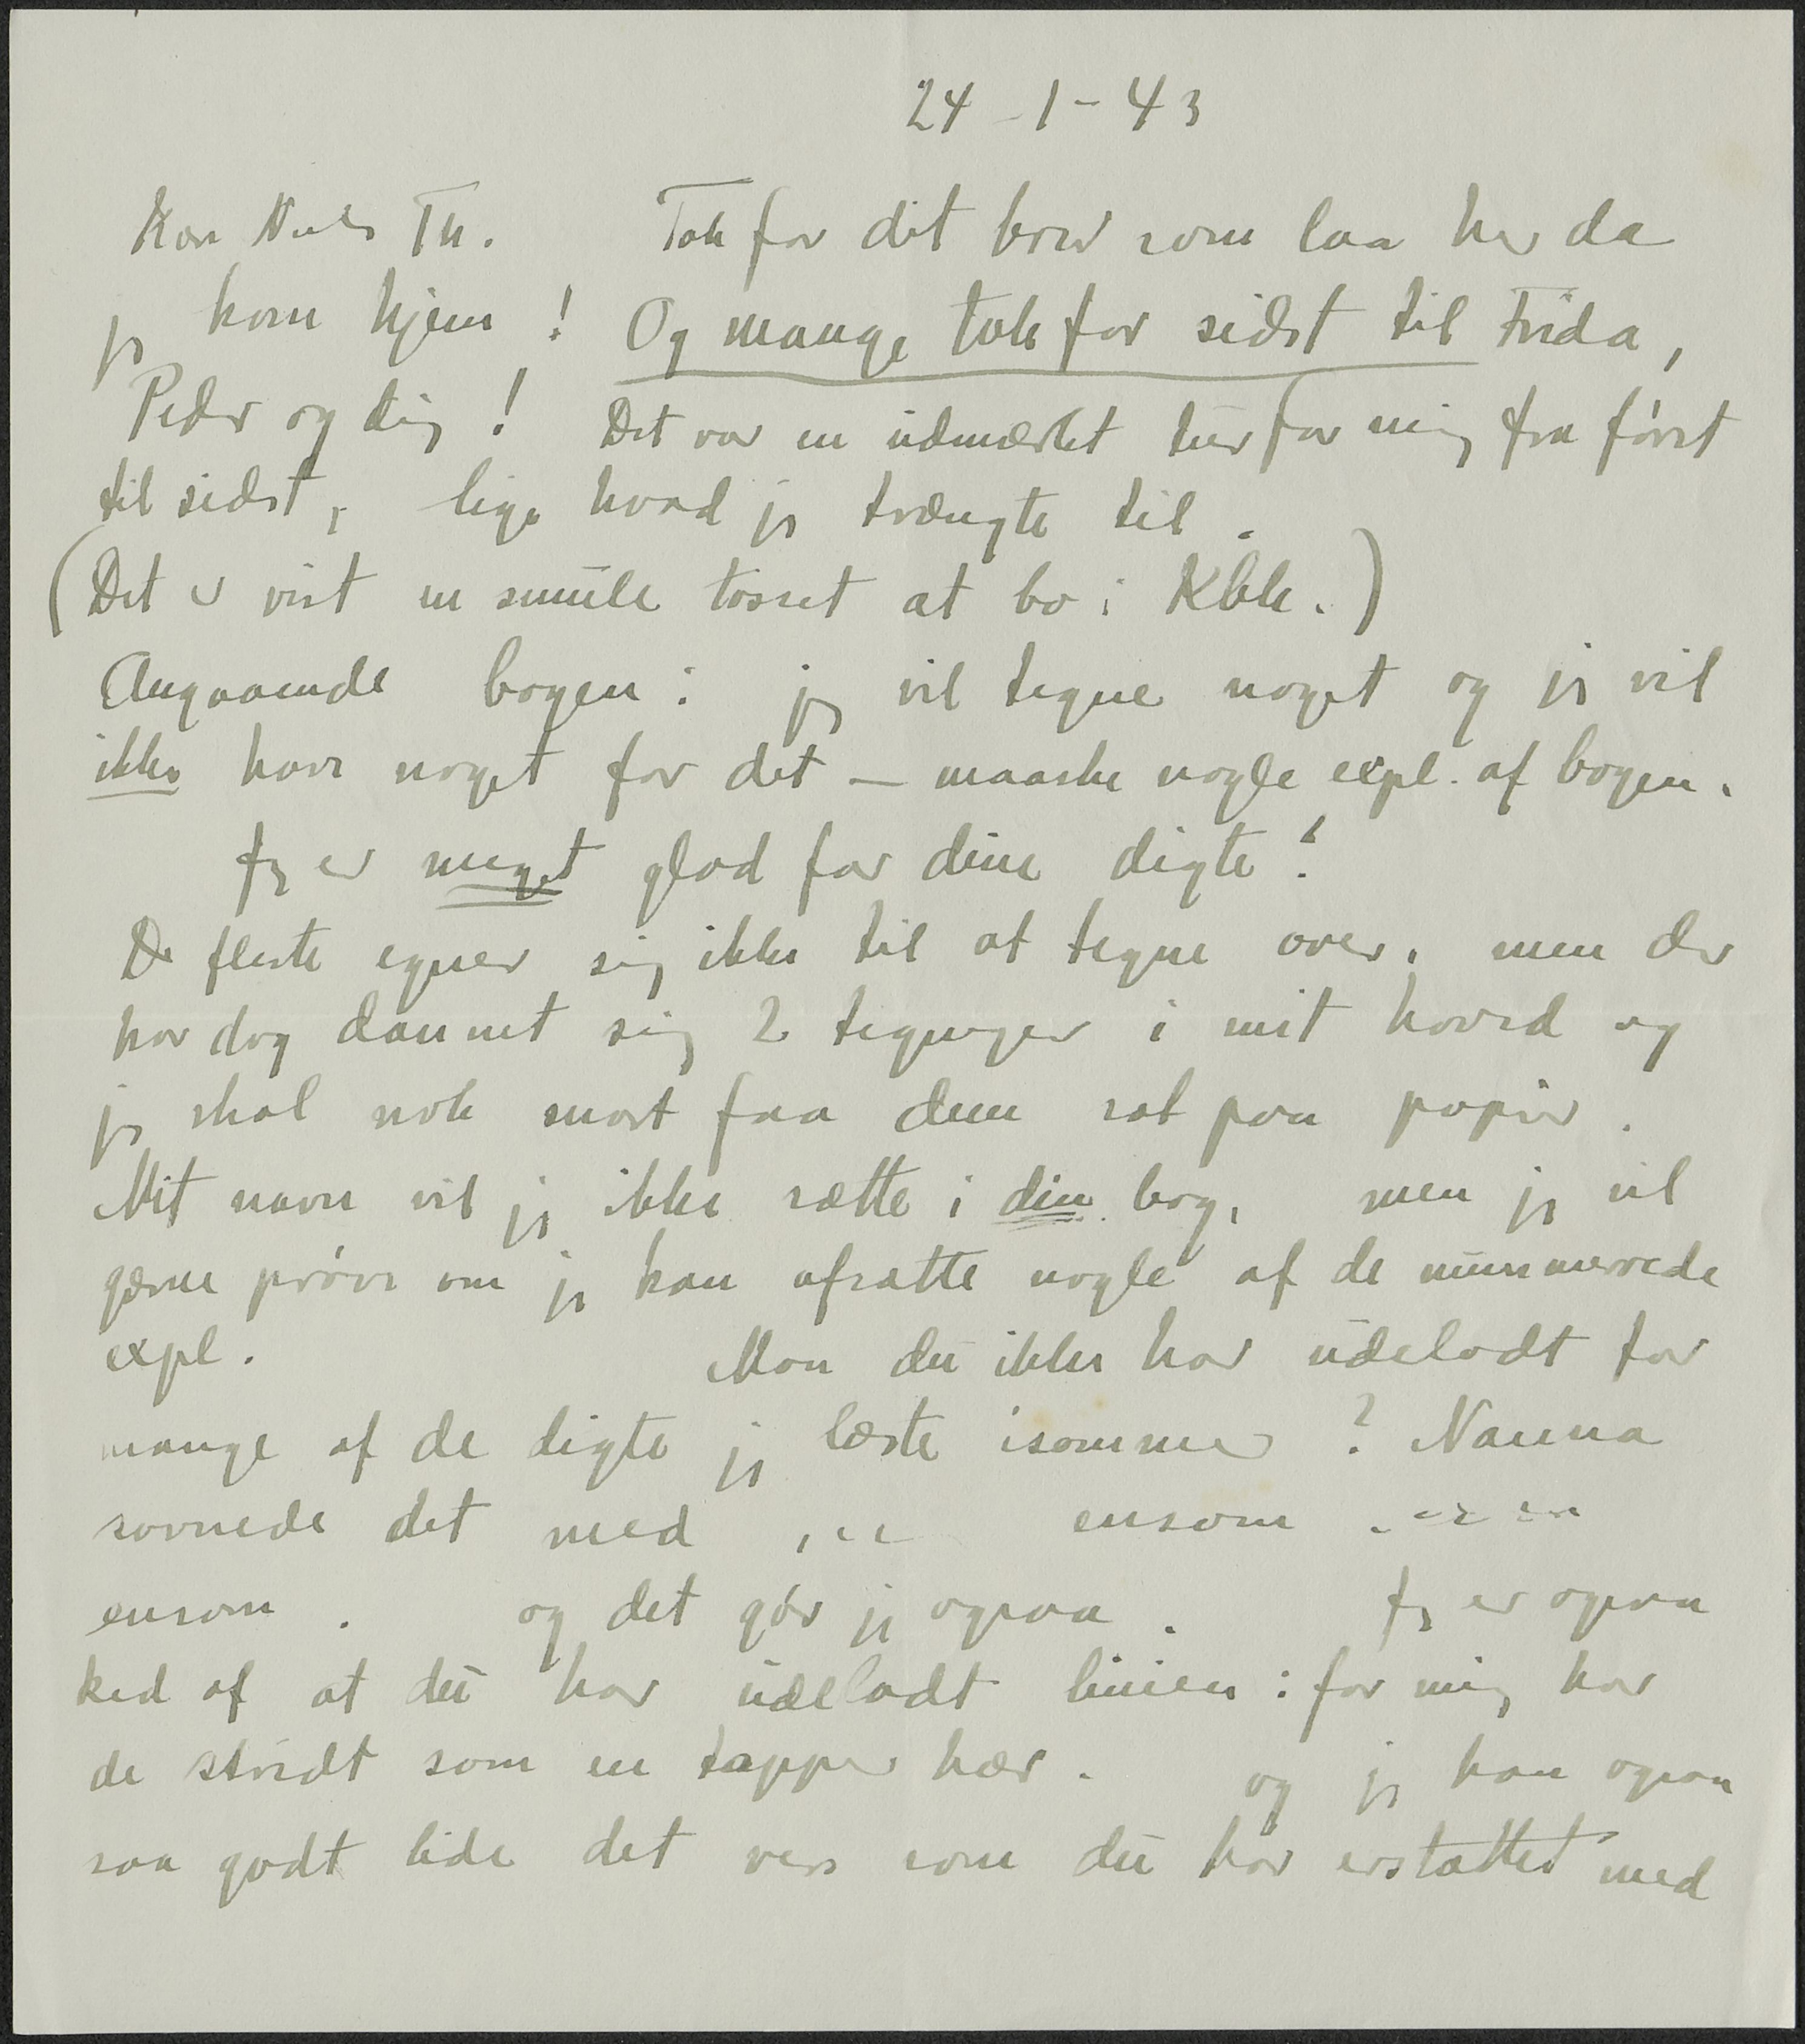 24-1-43
Kære Niels Th. Tak for dit brev som laa her da
jeg kom hjem! Og mange tak for sidst til Frida,
Peder og dig! Det var en udmærket tur for mig fra først
til sidst, lige hvad jeg trængte til.
(Det er vist en smule tosset at bo i Kbh.)
Angaaende bogen: jeg vil tegne noget og jeg vil
ikke have noget for det – maaske nogle expl. af bogen.
Jeg er meget glad for dine digte!
De fleste egner sig ikke til at tegne over, men der
har dog dannet sig 2 tegninger i mit hoved og
jeg skal nok snart faa dem sat paa papir.
Mit navn vil jeg ikke sætte i din bog, men jeg vil
gerne prøve om jeg kan afsætte nogle af de nummererede
expl. Mon du ikke har udeladt for
mange af de digte jeg læste isommer? Nanna
savnede det med ,,, ensom .....
ensom. og det gør jeg ogsaa. Jeg er ogsaa
ked af at du har udeladt linien: for mig har
de stridt som en tapper hær. og jeg kan ogsaa
saa godt lide det vers som du har erstattet med